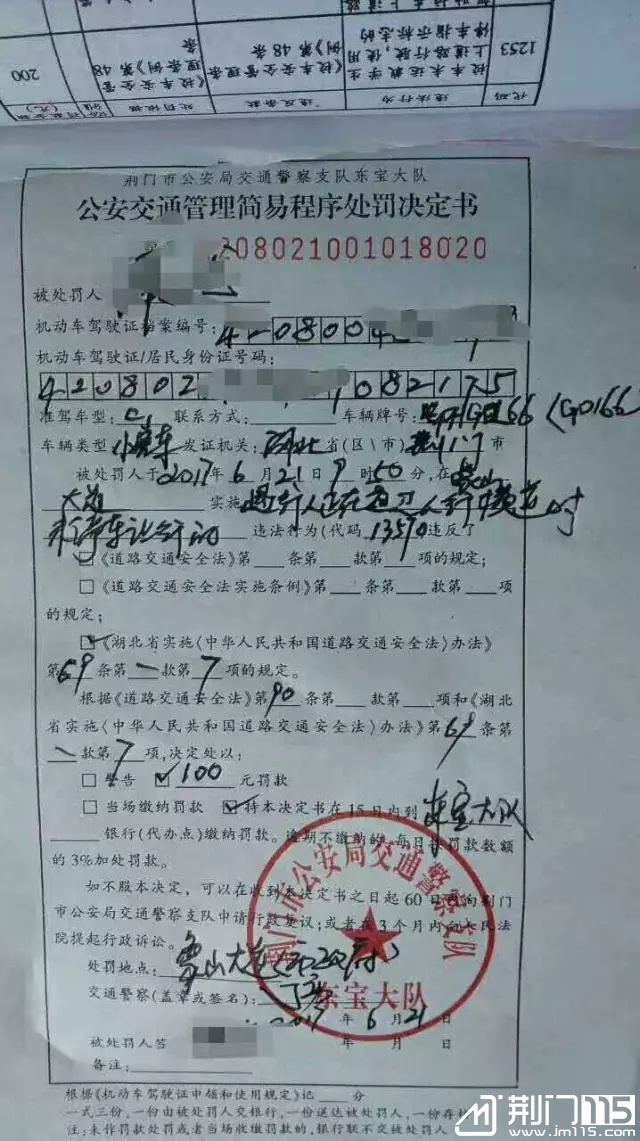 1253
校车未运载学生
上道路行驶，使用
停车指示标志的
《校车安全管理条
例》第48条
《校车安全管
理条例》第48
条
200
代码
违法行为
违反条款
处罚依据
荆门市公安局交通警察支队东宝大队
公安交通管理简易程序处罚决定书
08021001018020
被处罚人
机动车驾驶证档案编号：4 08004
机动车驾驶证/居民身份证号码：
420802 1082175
准驾车型：C1 联系方式： 车辆牌号： 66（G0166
车辆类型 小客车 发证机关：湖北 省(区\市) 荆门 市
被处罚人于2017年6月21日9时50分，在象山
大道 实施 遇行人正在通过人行横道时
未停车让行的 违法行为(代码13570违反了
□《道路交通安全法》第 条第 款第 项的规定；
□《道路交通安全法实施条例》第 条第 款第 项
的规定；
☑《湖北省实施〈中华人民共和国道路交通安全法〉办法》
第69条第一款第7项的规定。
根据《道路交通安全法》第90条第 款第 项和《湖北
省实施〈中华人民共和国道路交通安全法〉办法》第69条第
一款第7项，决定处以：
□ 警告 ☑ 100 元罚款
□ 当场缴纳罚款 ☑ 持本决定书在15日内到 东宝大队
银行(代办点)缴纳罚款。逾期不缴纳的，每日按罚款数额
的3%加处罚款。
如不服本决定，可以在收到本决定书之日起60日内向荆门
市公安局交通警察支队申请行政复议；或者在3个月内向人民法
院提起行政诉讼。
处罚地点：象山大道
交通警察(盖章或签名)：
荆门市公安局交通警察支队
东宝大队
2017年6月21日
被处罚人签
备注：
根据《机动车驾驶证申领和使用规定》记 分
一式三份，一份由被处罚人交银行，一份送达被处罚人，一份存
注：未作罚款处罚或者当场收缴罚款的，银行联不交被处罚人
荆门115
www.jm115.com